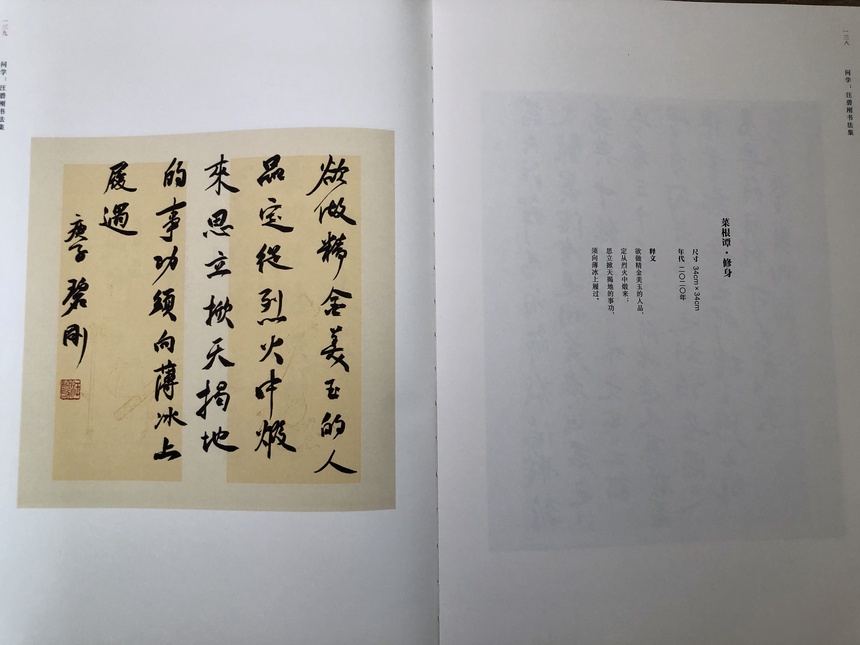 一三八
问学：汪碧刚书法集
菜根谭·修身
尺寸 34cm×34cm
年代 二〇二〇年
释文
欲做精金美玉的人品，
定从烈火中煅来；
思立掀天揭地的事功，
须向薄冰上履过。
欲做精金美玉的人
品定從烈火中煅
來思立掀天揭地
的事功須向薄冰上
履過
庚子碧剛
一三九
问学：汪碧刚书法集